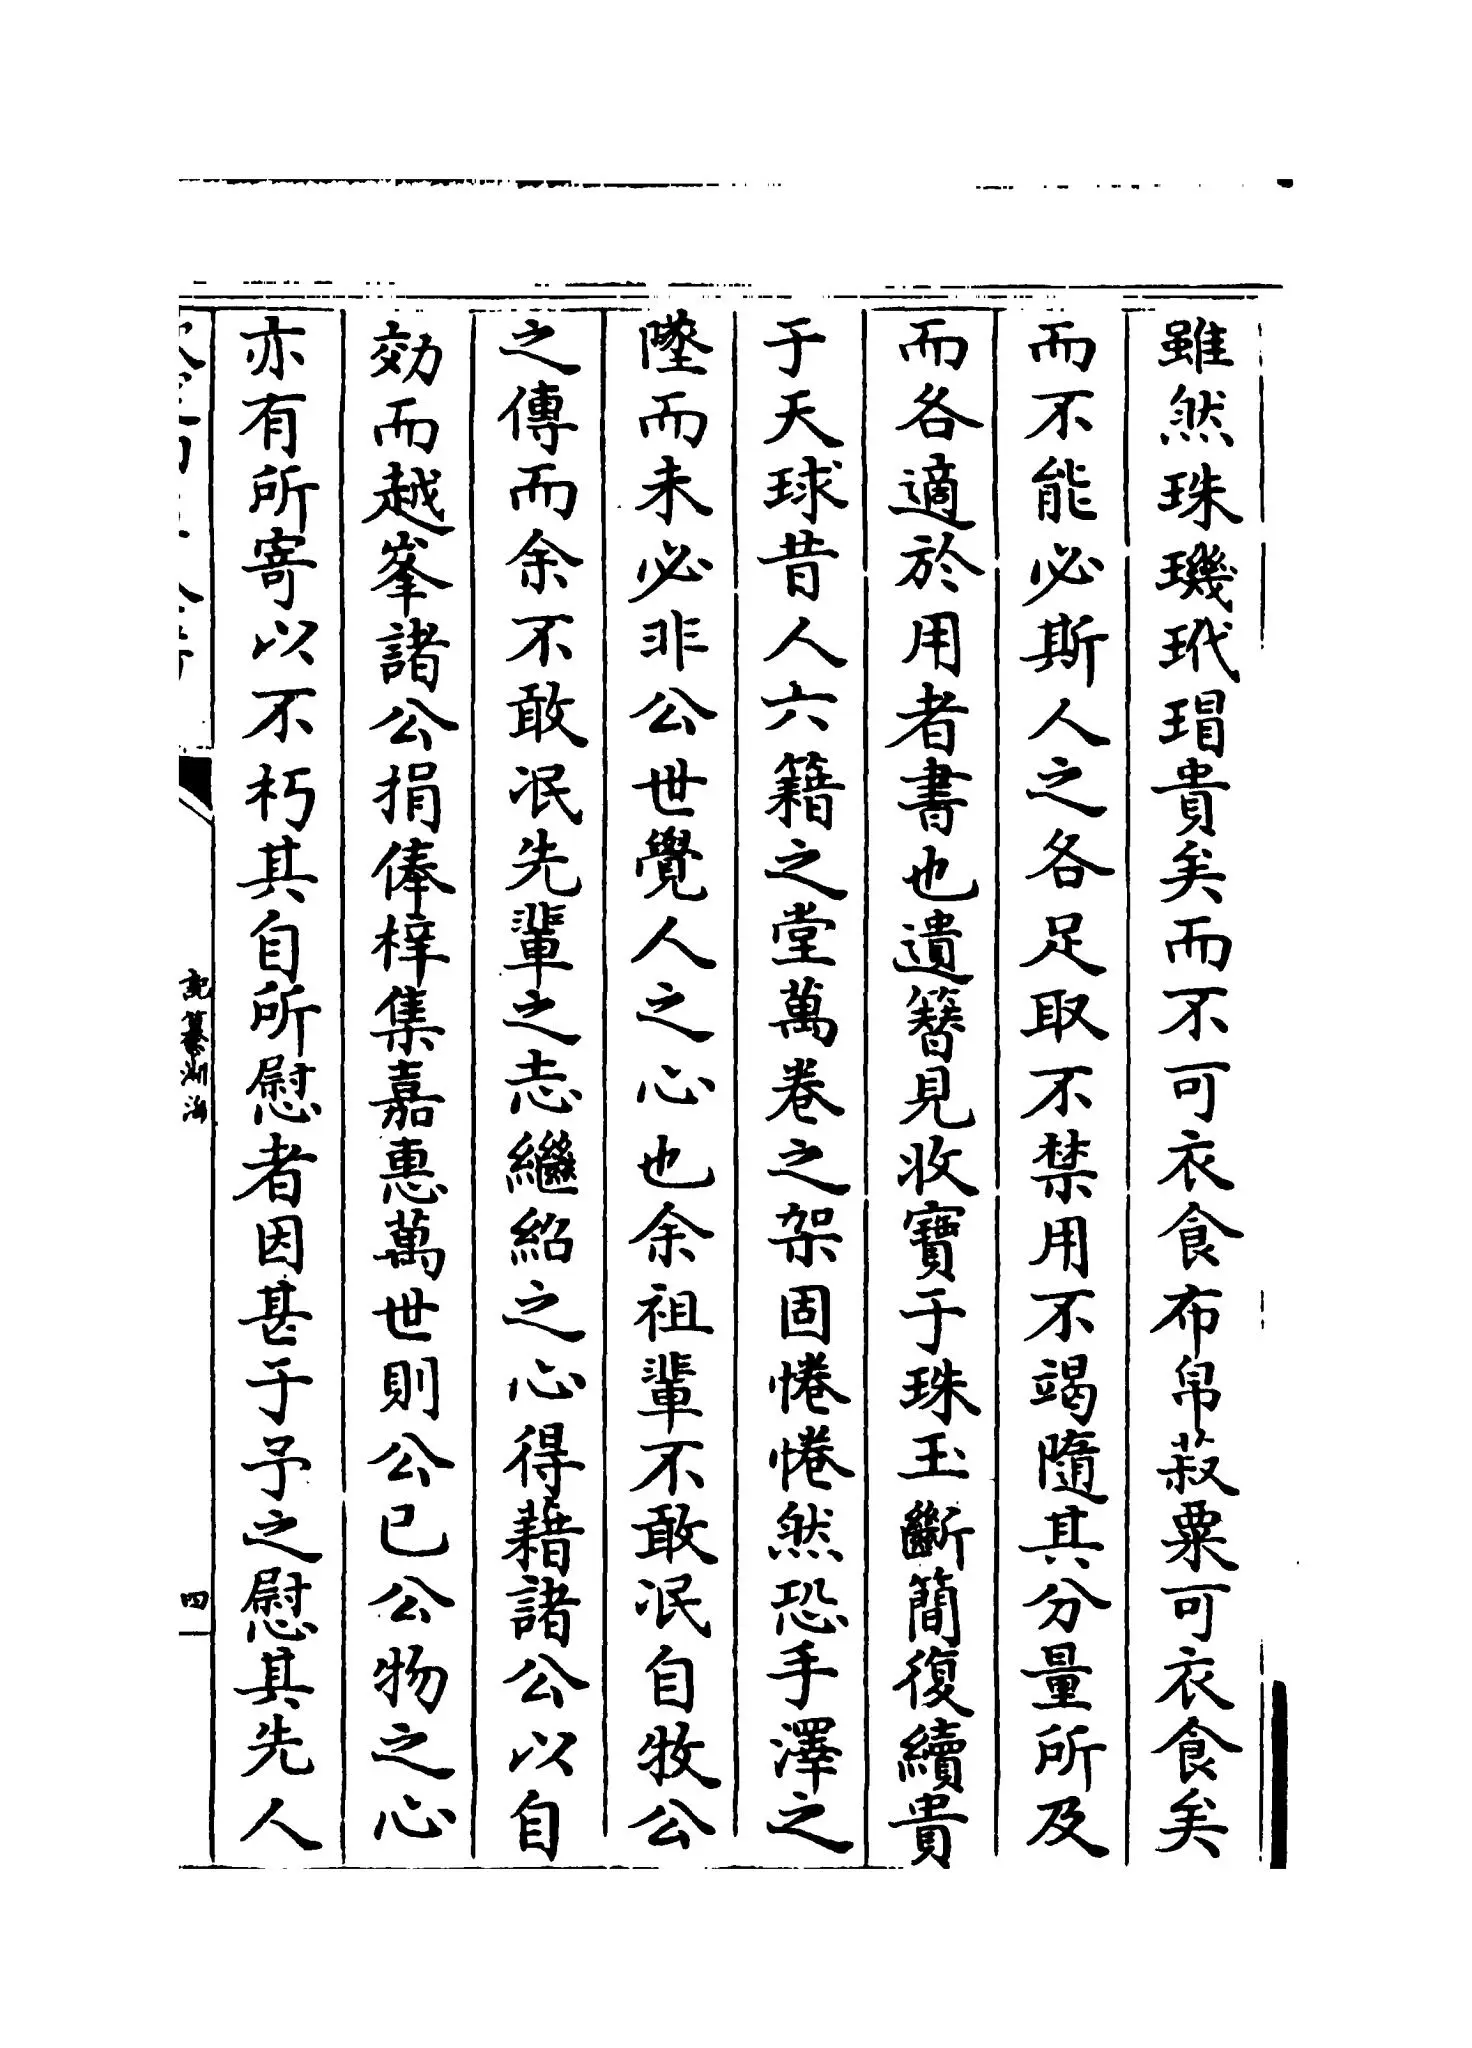 雖然珠璣玳瑁貴矣而不可衣食布帛菽粟可衣食矣
而不能必斯人之各足取不禁用不竭隨其分量所及
而各適於用者書也遺簪見收寳于珠玉斷簡復續貴
于天球昔人六籍之堂萬卷之架固惓惓然恐手澤之
墜而未必非公世覺人之心也余祖輩不敢泯自牧公
之傳而余不敢泯先輩之志繼紹之心得藉諸公以自
効而越峯諸公捐俸梓集嘉惠萬世則公已公物之心
亦有所寄以不朽其自所慰者因甚于予之慰其先人
記纂淵海
四